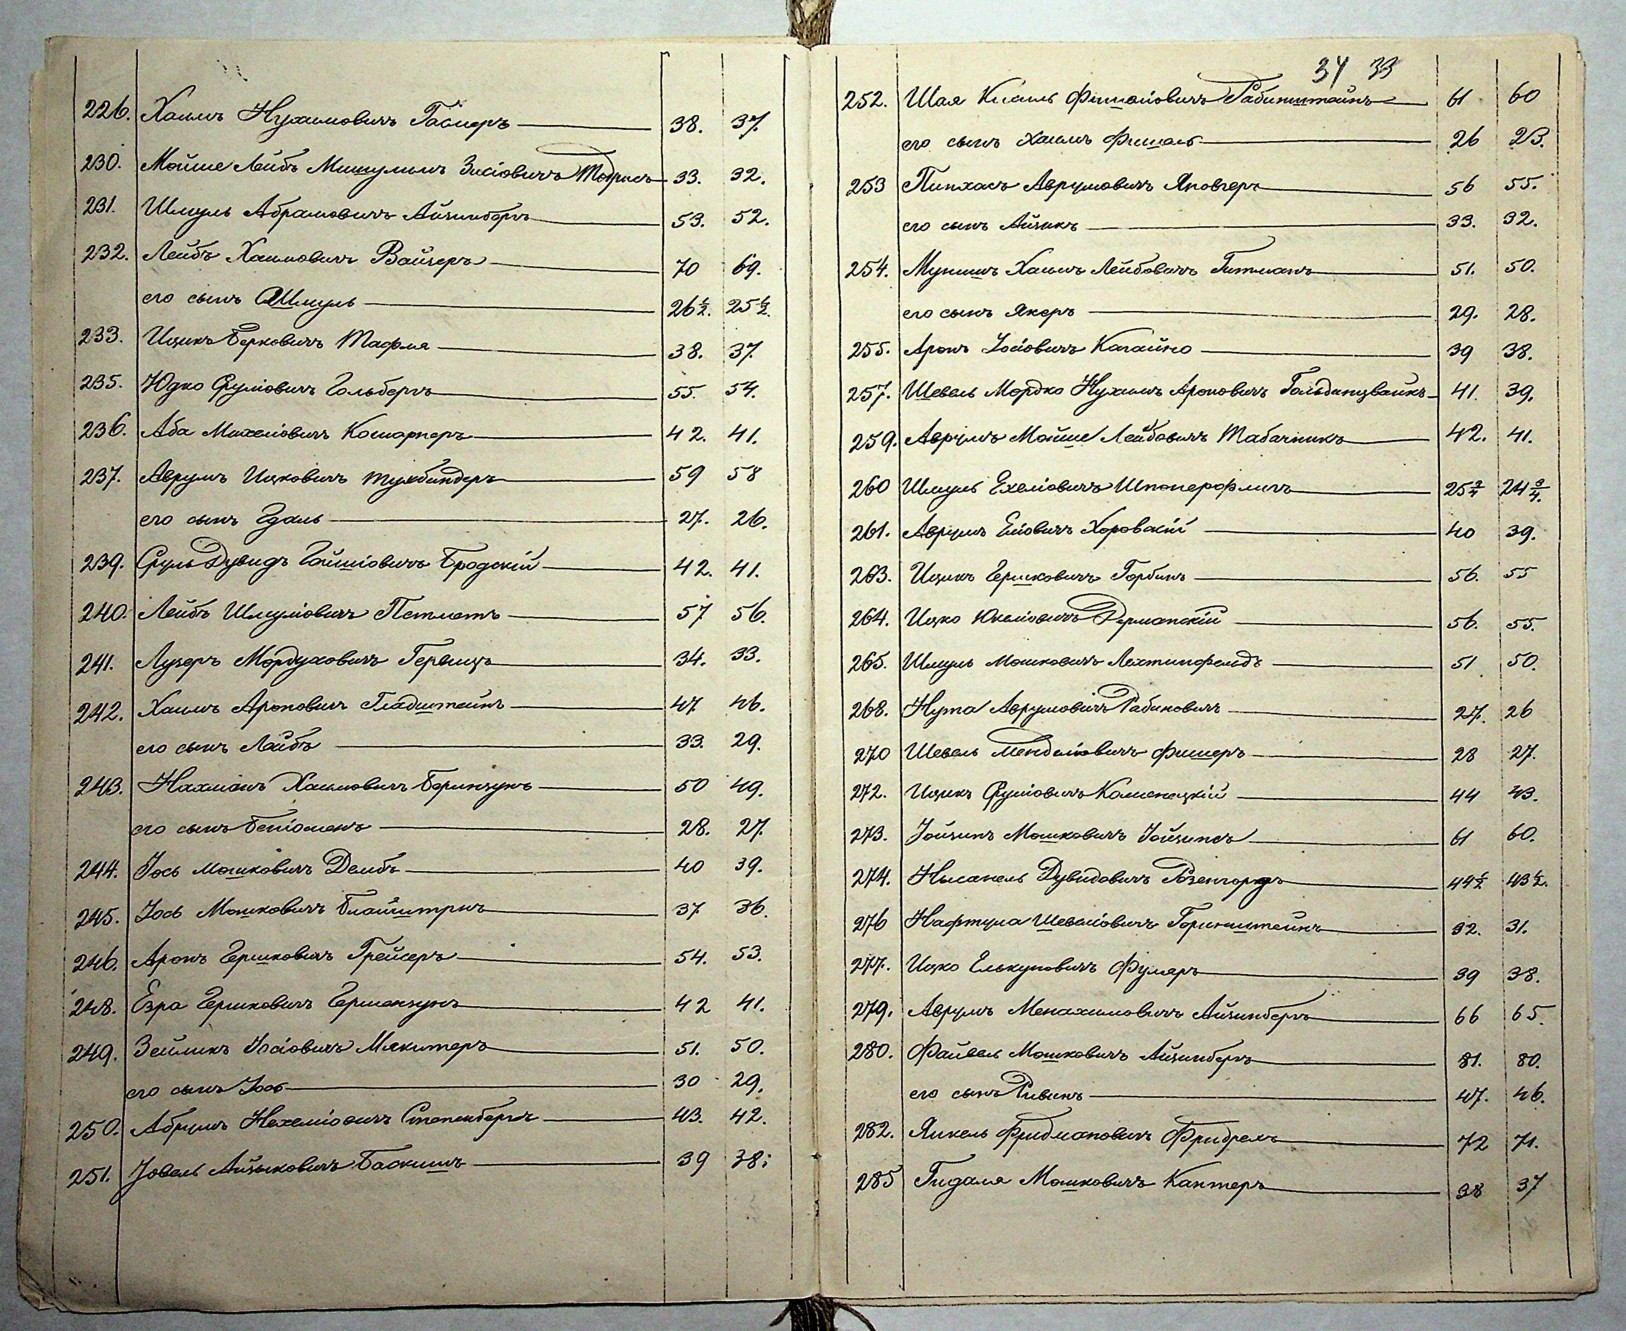 226. Хаимъ Нухимовичъ Гаснеръ 38. 37.
230. Мойше Лейбъ Мишулымъ Зисіовичъ 33. 32.
231. Шмуль Абрамовичъ Айзинбергъ 53. 52.
232. Лейбъ Хаимовичъ Вайнеръ 70 69.
его сынъ Шмуль 26½. 25½.
233. Ицикъ Берковичъ Тафля 38. 37.
235. Юдко Сруліовичъ Гольбергъ 55. 54.
236. Аба Михеліовичъ Кошарнеръ 42. 41.
237. Аврумъ Ицковичъ Тукбиндеръ 59 58
его сынъ Гдаль 27. 26.
239. Сруль Дувидъ Гойшіовичъ Бродскій 42. 41.
240. Лейбъ Шмуліовичъ 57 56.
241. Лузеръ Мордуховичъ Геренцъ 34. 33.
242. Хаимъ Ароновичъ Гладштейнъ 47 46.
его сынъ Лейбъ 33. 29.
243. Нахманъ Хаимовичъ Беринзунъ 50 49.
его сынъ Беніоменъ 28. 27
244. Іось Мошковичъ Дембъ 40 39.
245. Іось Мошковичъ 37 36.
246. Аронъ Гершковичъ Грейсеръ 54. 53.
248. Езра Гершковичъ Гершензунъ 42 41.
249. Зейликъ Іосіовичъ Макитеръ 51. 50.
его сынъ Іось 30 29.
250. Абрумъ Нехеміовичъ Степенбергъ 43. 42.
251. Іовель Айзыковичъ Баскишъ 39 38.
34 33
252. Шая Кисиль Фишоліовичъ Рабинштейнъ 61 60
его сынъ Хаимъ Фишоль 26 23.
253 Пинхасъ Аврумовичъ Яновгеръ 56 55.
его сынъ Айзикъ 33. 32.
254. Мунишъ Хаимъ Лейбовичъ Гитманъ 51. 50.
его сынъ Якеръ 29. 28.
255. Аронъ Іосіовичъ Кагайно 39 38.
257. Шевель Мордко Нухимъ Ароновичъ Гольданцвайкъ 41 39.
259. Аврумъ Мойше Лейбовичъ Табачникъ 42. 41.
260 Шмуль Ехеліовичъ 25¾ 24¾.
261. Аврумъ Еліовичъ Хоровскій 40 39.
263. Ицикъ Гершковичъ Горбинъ 56. 55
264. Ицко Юкеліовичъ Дерманскій 56. 55.
265. Шмуль Мошковичъ Лехтинфельдъ 51 50.
268. Нута Аврумовичъ Рабиновичъ 27. 26
270 Шевель Менделіовичъ Фишеръ 28 27.
272. Ицикъ Сруліовичъ Коменецкій 44 43.
273. Іойзипъ Мошковичъ Іойзиповъ 61 60.
274. Нысанель Дувидовичъ Розенгордъ 44½ 43½.
276 Нафтула Шевеліовичъ Горинштейнъ 32. 31.
277. Ицко Елькуновичъ Фулеръ 39 38.
279. Аврумъ Менахимовичъ Айзинбергъ 66 65.
280. Файвель Мошковичъ Айзинбергъ 81. 80.
его сынъ Ривинъ 47. 46.
282. Янкель Фридмановичъ Фридрелъ 72 71.
285 Гидаля Мошковичъ Кантеръ 38 37